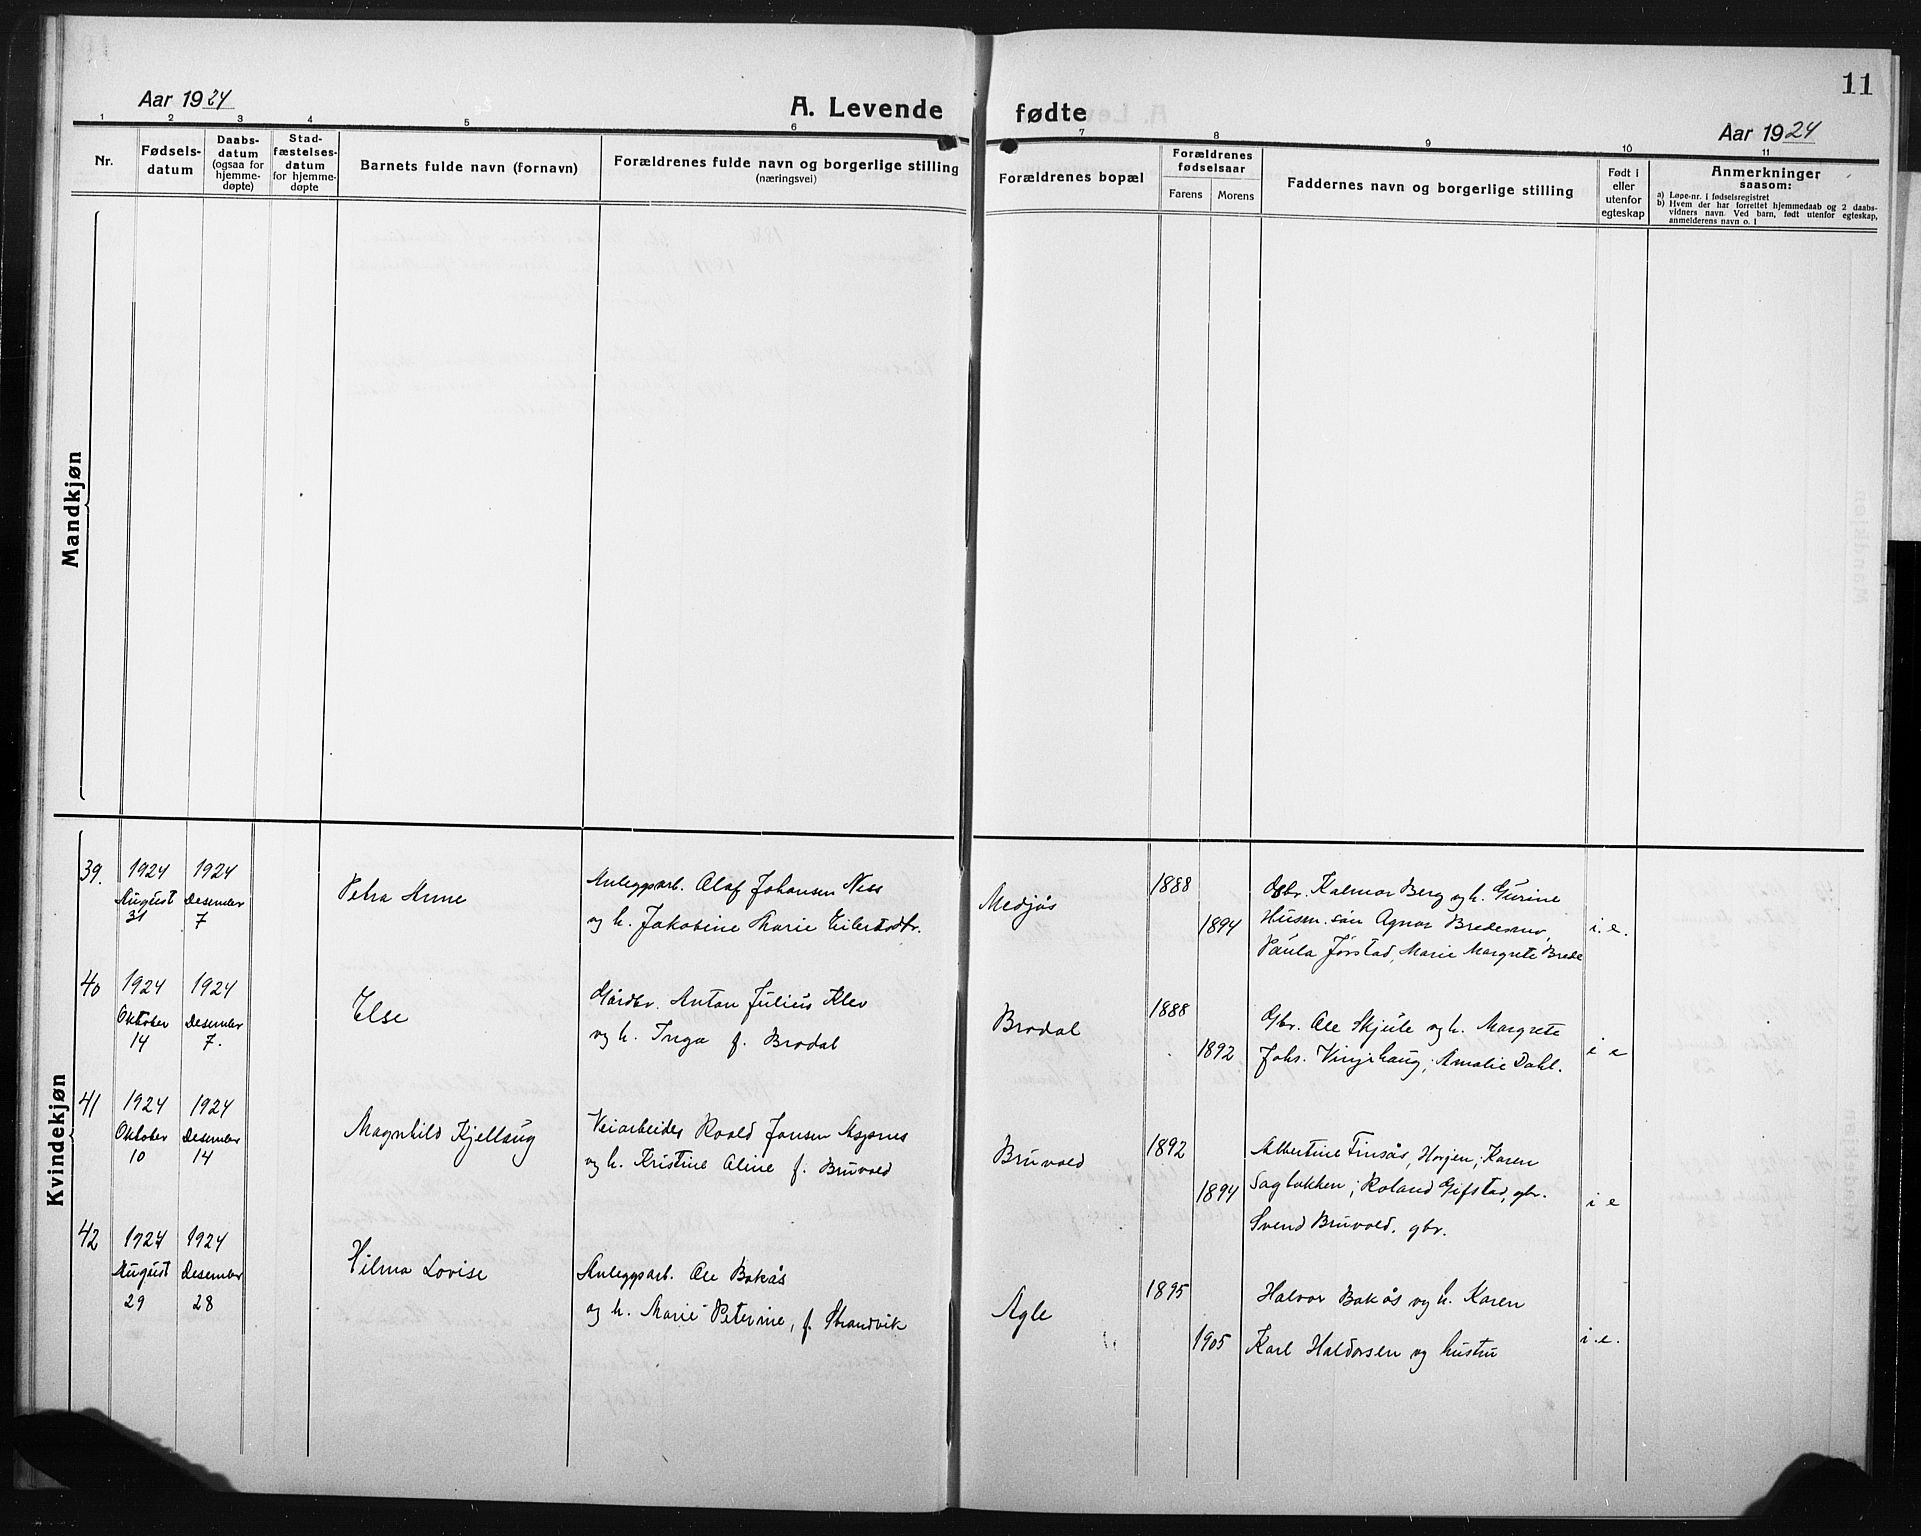 11
Aar 1924
A. Levende fødte
Aar 1924
1 2 3 4 5 6 7 8 9 10 11
Nr.
Fødsels-
datum
Daabs-
datum
(ogsaa for
hjemme-
døpte)
Stad-
fæstelses-
datum
for hjemme-
døpte
Barnets fulde navn (fornavn)
Forældrenes fulde navn og borgerlige stilling
(næringsvei)
Forældrenes bopæl
Forældrenes
fødselsaar
Farens Morens
Faddernes navn og borgerlige stilling
Født i
eller
utenfor
egteskap
Anmerkninger
saasom:
a) Løpe-nr. i fødselsregistret
b) Hvem der har forrettet hjemmedaab og 2 daabs-
vidners navn. Ved barn, født utenfor egteskap,
anmelderens navn o. l
Mandkjøn
Kvindekjøn
39.
1924
August
31
1924
Desember
7
Petra Anne
Anleggsarb. Olaf Johansen Ness
og h. Jakobine Marie
Medjås
1888
1894
Gbr. Kalmar Berg og h. Gurine
Husm. søn Agnar Bredesmo,
Paula Jørstad, Marie Margrete Brede
i. e.
40
1924
Oktober
14
1924
Desember
7.
Else
Gårdbr. Anton Julius Klev
og h. Inga f. Brodal
Brodal
1888
1892
Gbr. Ole Skjule og h. Margrete
Johs. Vingshaug, Amalie Dahl.
i e
41
1924
Oktober
10
1924
Desember
14
Magnhild Kjellaug
Veiarbeider Roald Jensen Aspnes
og h. Kristine Oline f. Bruvold
Bruvold
1892
1894
Albertine Finsås, Horjen; Karen
Sagbakken; Roland Gifstad, gbr.
Svend Bruvold, gbr.
i e
42
1924
August
29
1924
Desember
28
Hilma Lovise
Anleggsarb. Ole Bakås
og h. Marie Peterine, f. Strandvik
Agle
1895
1905
Halvor Bakås og h. Karen
Karl Haldorsen og hustru
i. e.